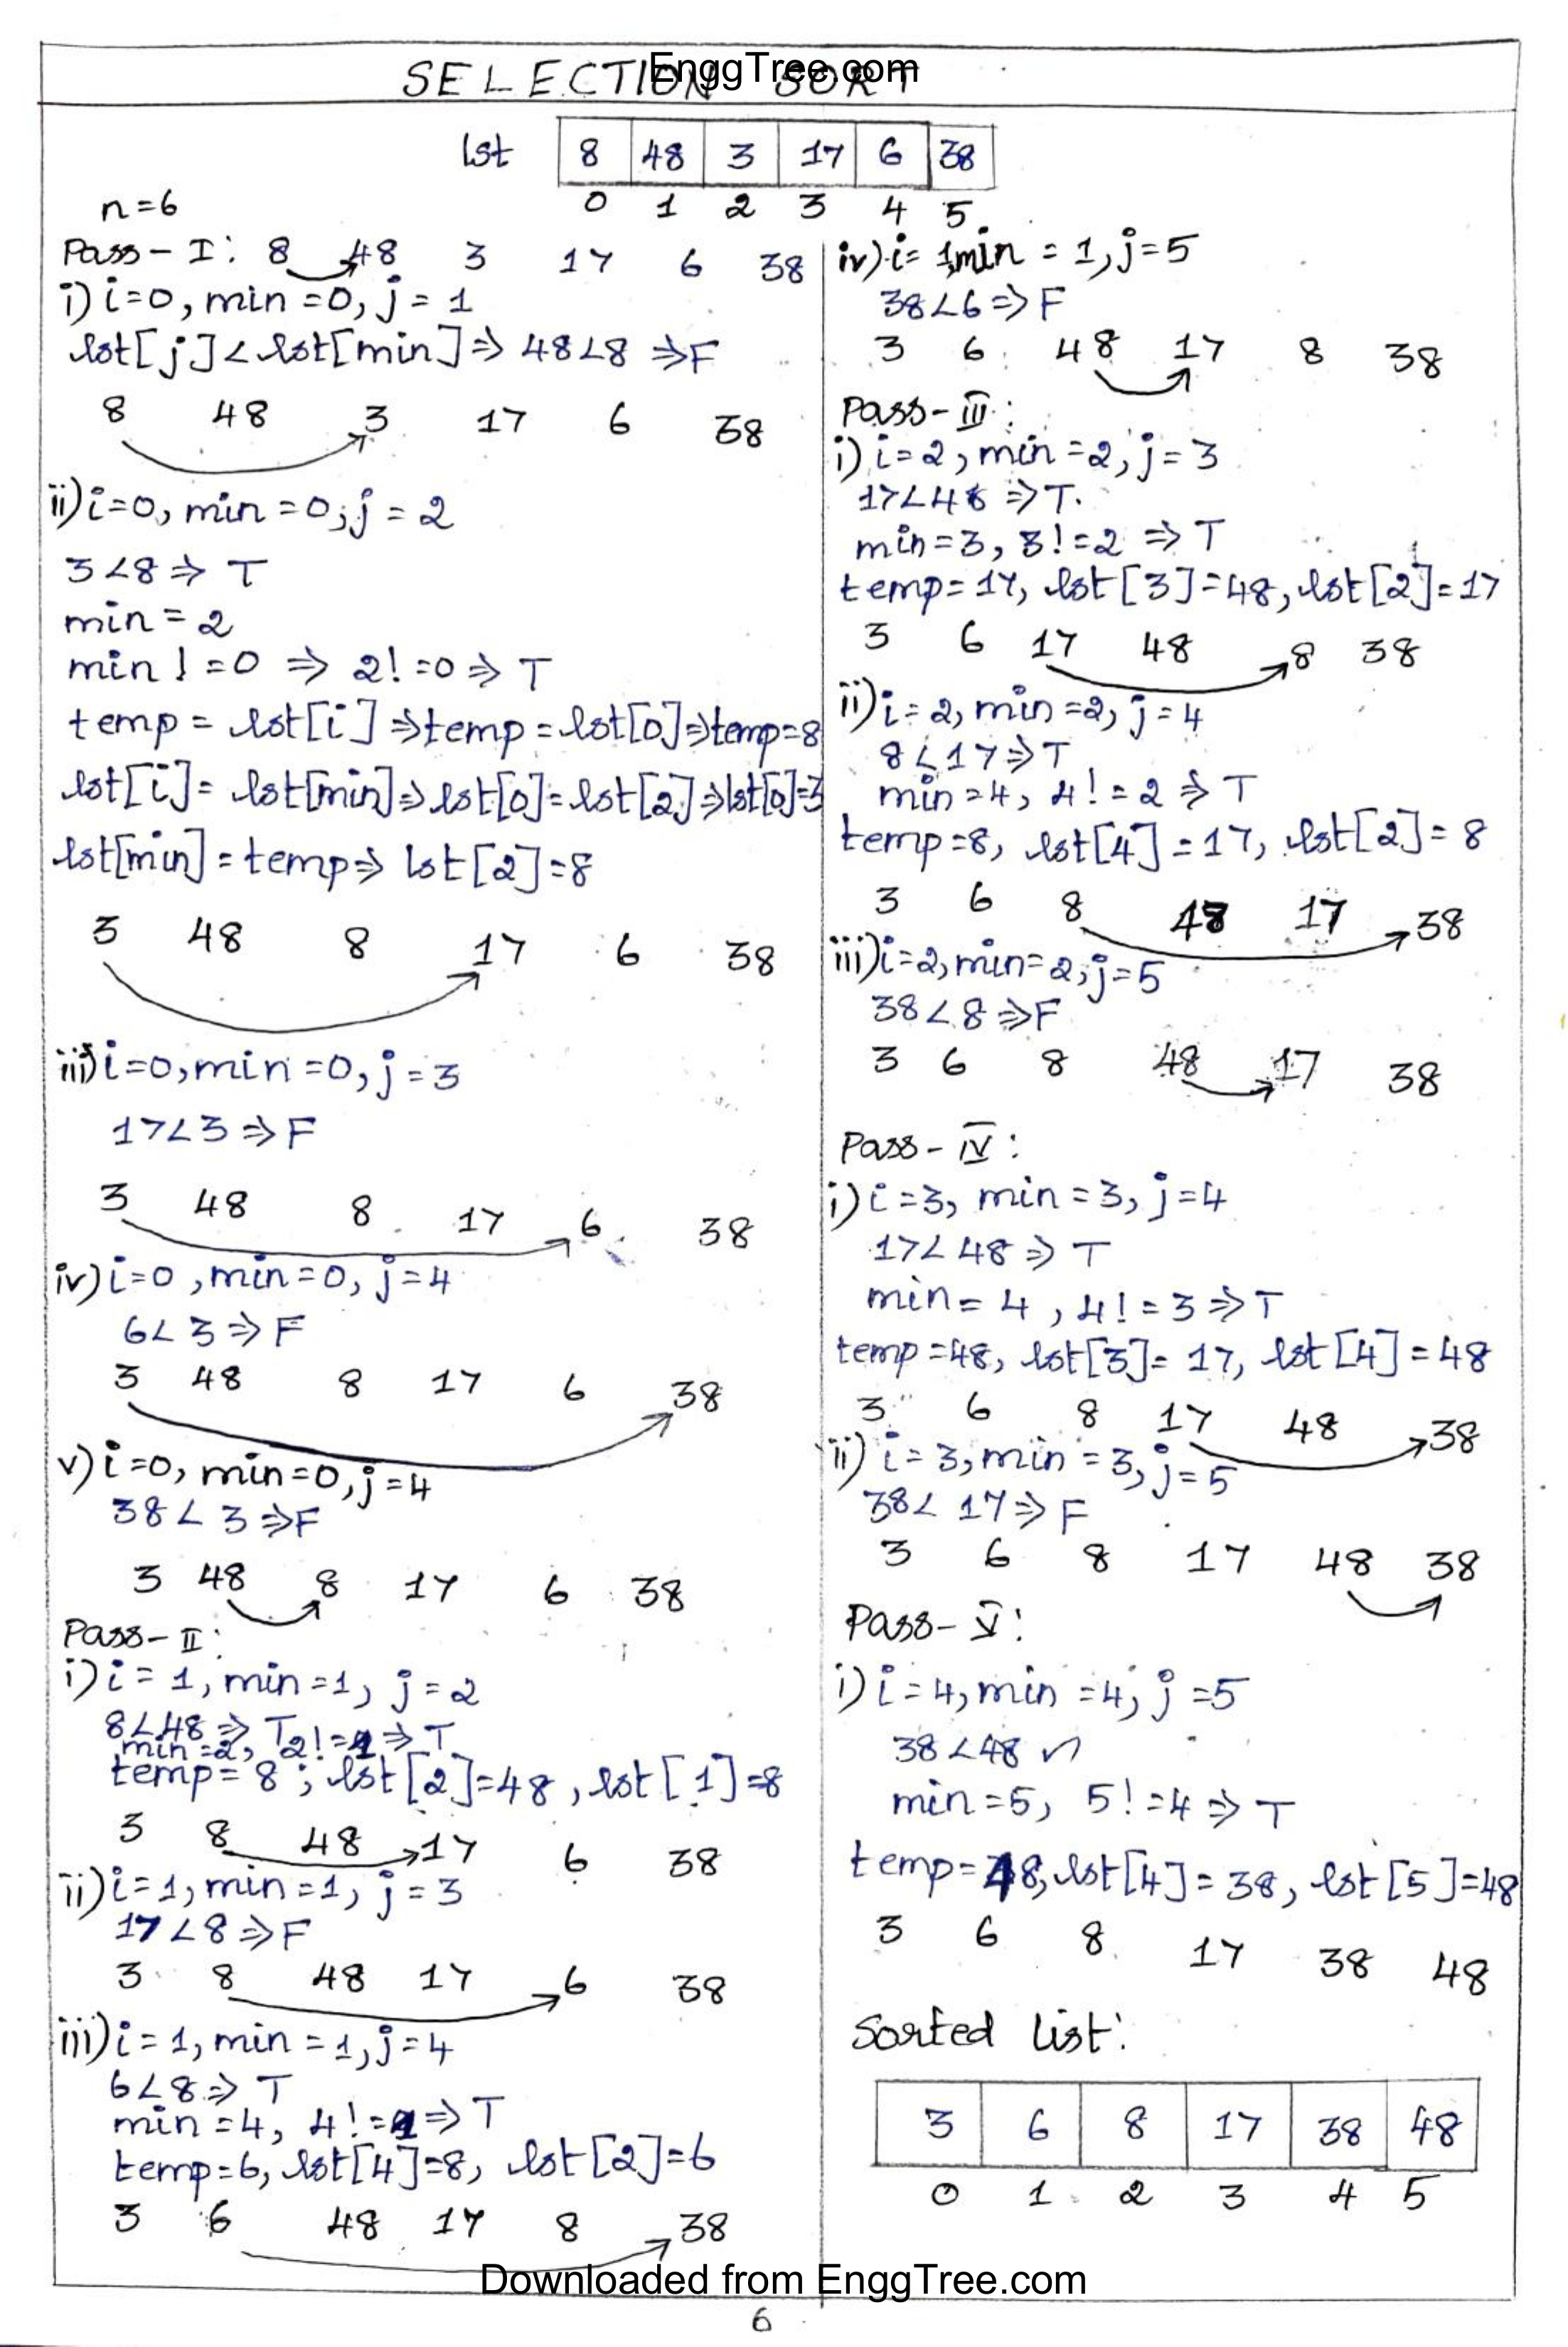 EnggTree.com
SELECTION SORT
lst 8 48 3 17 6 38
0 1 2 3 4 5
n=6
Pass-I: 8 48 3 17 6 38
i) i=0, min=0, j=1
lst[j]<lst[min]⇒ 48<8 ⇒F
8 48 3 17 6 38
ii) i=0, min=0, j=2
3<8⇒ T
min=2
min!=0 ⇒ 2!=0⇒T
temp = lst[i]⇒temp=lst[0]⇒temp=8
lst[i]= lst[min]⇒lst[0]=lst[2]⇒lst[0]=3
lst[min]=temp⇒ lst[2]=8
3 48 8 17 6 38
iii) i=0, min=0, j=3
17<3⇒F
3 48 8 17 6 38
iv) i=0, min=0, j=4
6<3⇒F
3 48 8 17 6 38
v) i=0, min=0, j=4
38<3⇒F
3 48 8 17 6 38
Pass-II:
i) i=1, min=1, j=2
8<48⇒ T
min=2, 2!=1⇒T
temp=8; lst[2]=48, lst[1]=8
3 8 48 17 6 38
ii) i=1, min=1, j=3
17<8⇒F
3 8 48 17 6 38
iii) i=1, min=1, j=4
6<8⇒ T
min=4, 4!=1⇒T
temp=6, lst[4]=8, lst[2]=6
3 6 48 17 8 38
iv) i=1, min=1, j=5
38<6⇒F
3 6 48 17 8 38
Pass-III:
i) i=2, min=2, j=3
17<48⇒T.
min=3, 3!=2⇒T
temp=17, lst[3]=48, lst[2]=17
3 6 17 48 8 38
ii) i=2, min=2, j=4
8<17⇒T
min=4, 4!=2⇒T
temp=8, lst[4]=17, lst[2]=8
3 6 8 48 17 38
iii) i=2, min=2, j=5
38<8⇒F
3 6 8 48 17 38
Pass-IV:
i) i=3, min=3, j=4
17<48⇒T
min=4, 4!=3⇒T
temp=48, lst[3]=17, lst[4]=48
3 6 8 17 48 38
ii) i=3, min=3, j=5
38<17⇒F
3 6 8 17 48 38
Pass-V:
i) i=4, min=4, j=5
38<48
min=5, 5!=4⇒T
temp=48, lst[4]=38, lst[5]=48
3 6 8 17 38 48
Sorted List:
3 6 8 17 38 48
0 1 2 3 4 5
Downloaded from EnggTree.com
6